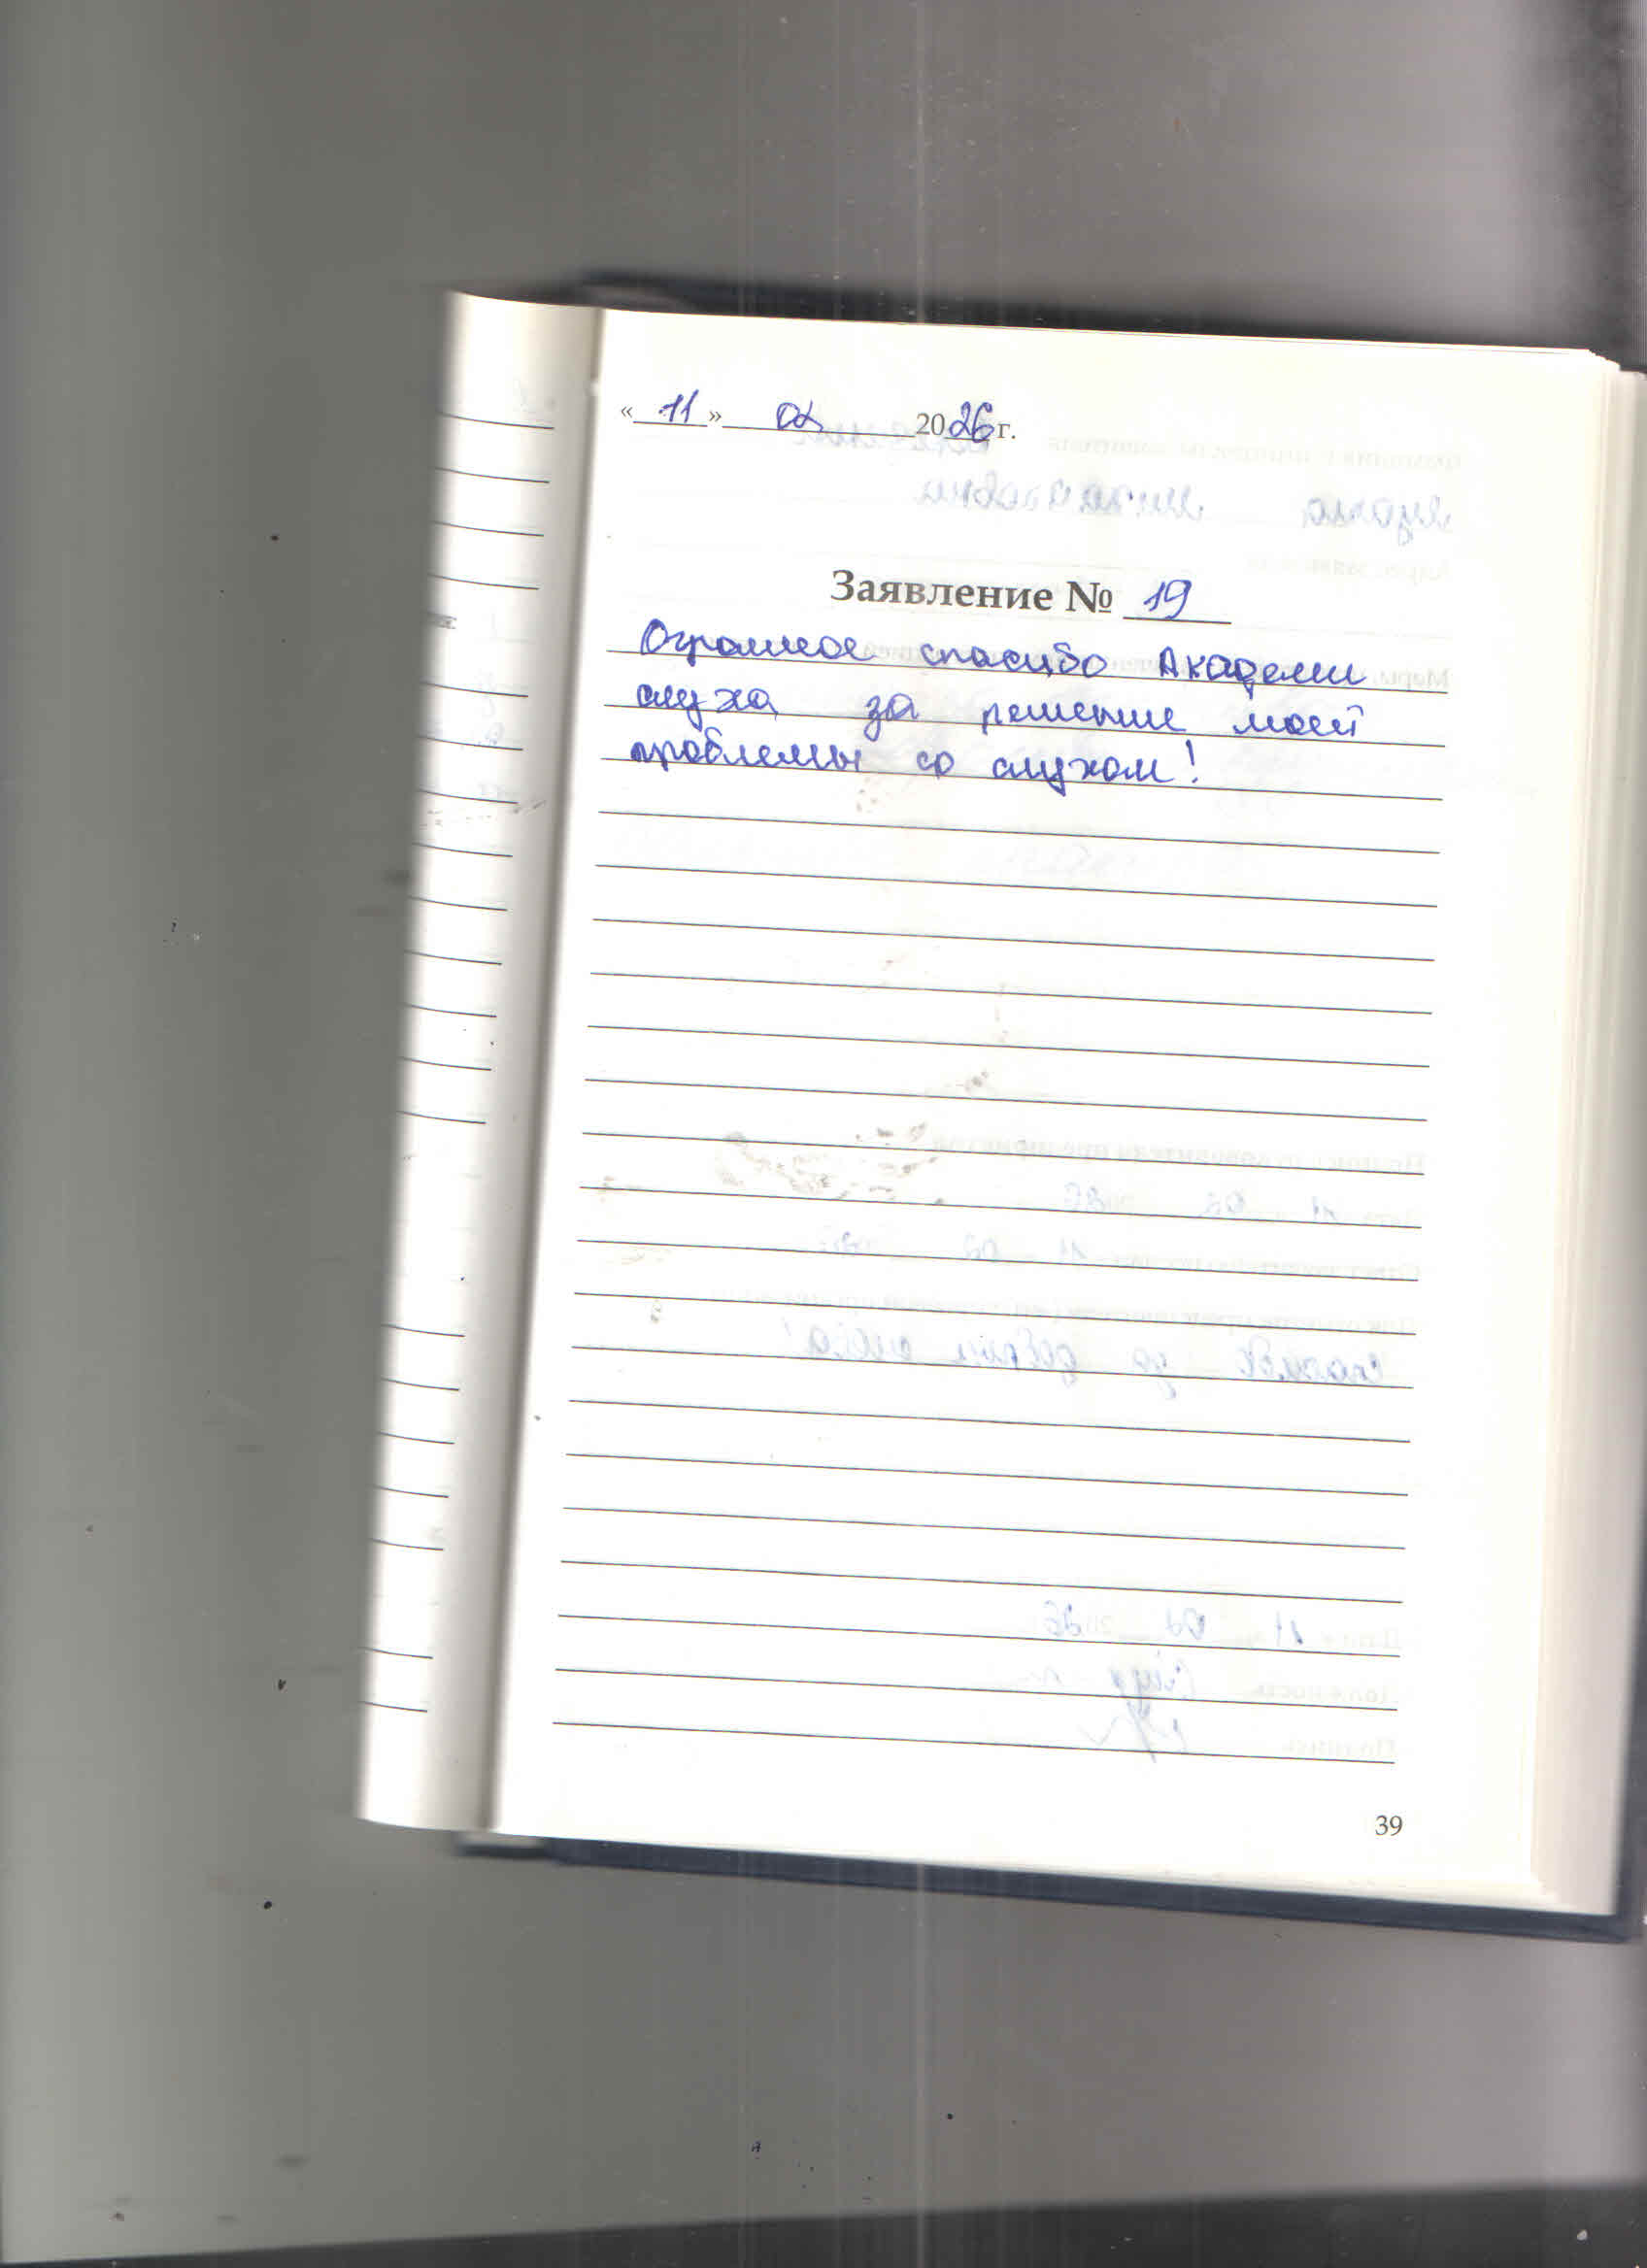 «11» 02 2026 г.
Заявление № 19
Огромное спасибо Академии
слуха за решение моей
проблемы со слухом!
39